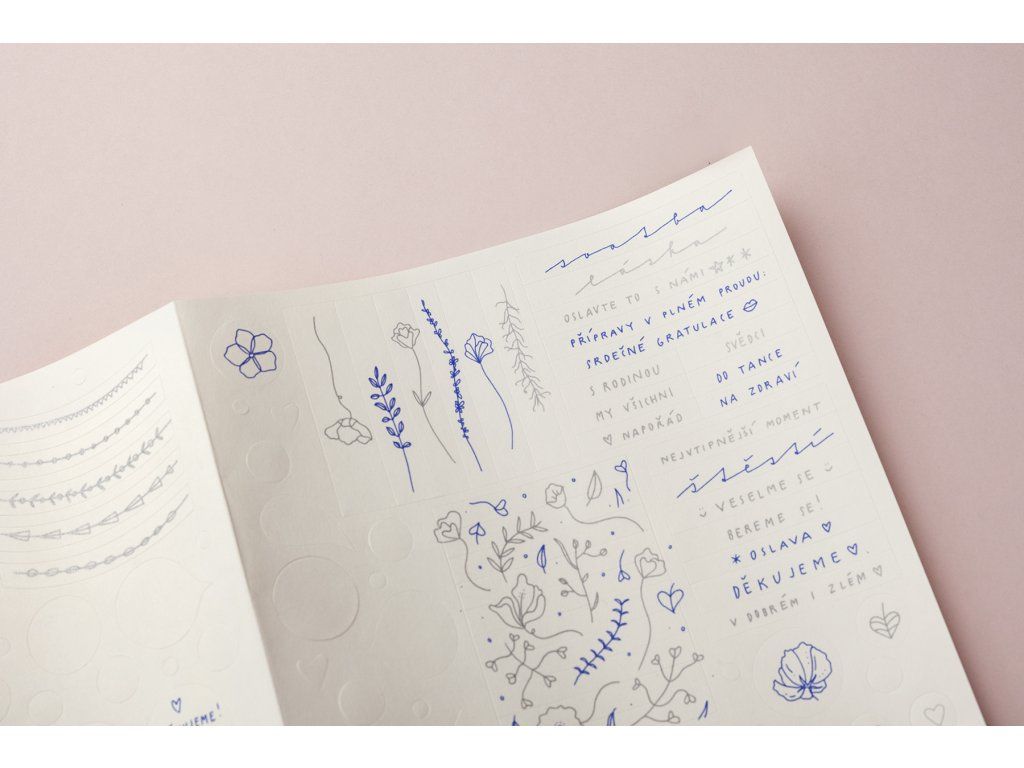 svatba
láska
OSLAVTE TO S NÁMI
PŘÍPRAVY V PLNÉM PROUDU:
SRDEČNÉ GRATULACE
SVĚDCI
S RODINOU
DO TANCE
MY VŠICHNI
NA ZDRAVÍ
♡ NAPOŘÁD
NEJVTIPNĚJŠÍ MOMENT
štěstí
VESELME SE
BEREME SE!
* OSLAVA ♡
DĚKUJEME ♡
V DOBRÉM I ZLÉM ♡